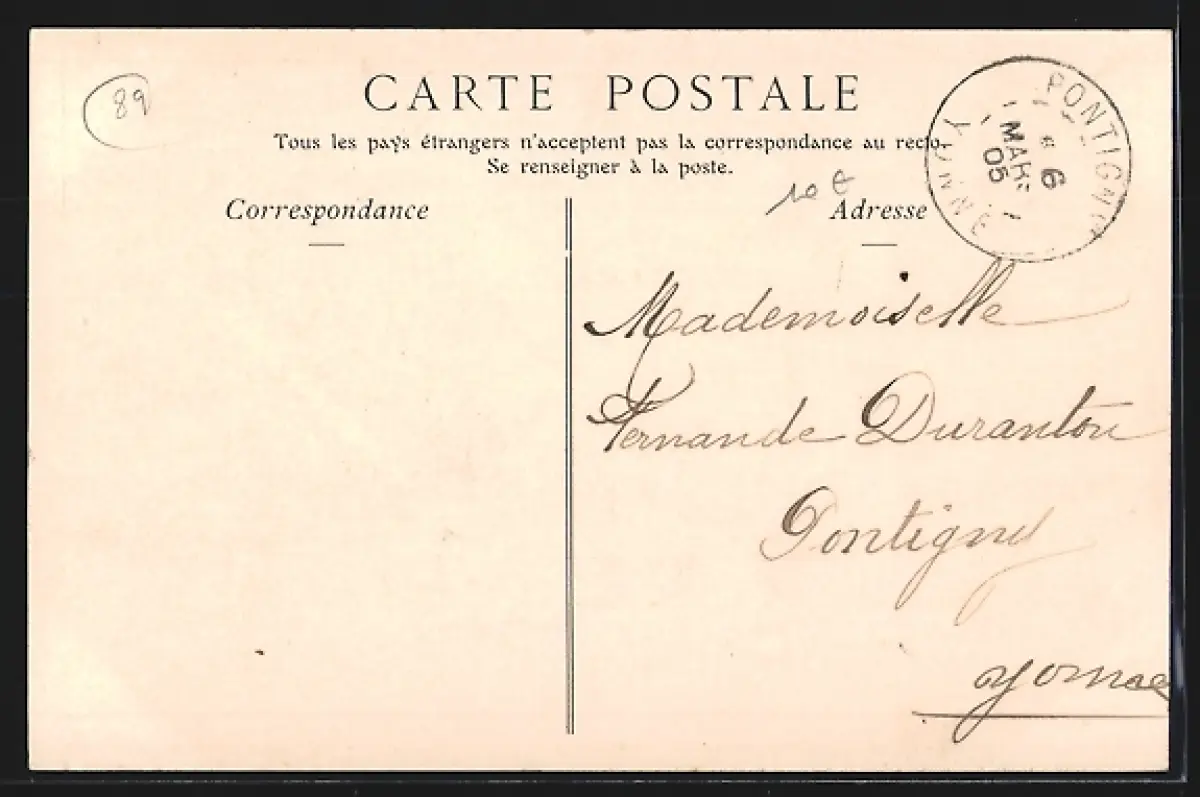 89
CARTE POSTALE
Tous les pays étrangers n'acceptent pas la correspondance au recto.
Se renseigner à la poste.
Correspondance
Adresse
10 €
PONTIGNY
6
MARS
05
YONNE
Mademoiselle
Fernande Duranton
Pontigny
Yonne